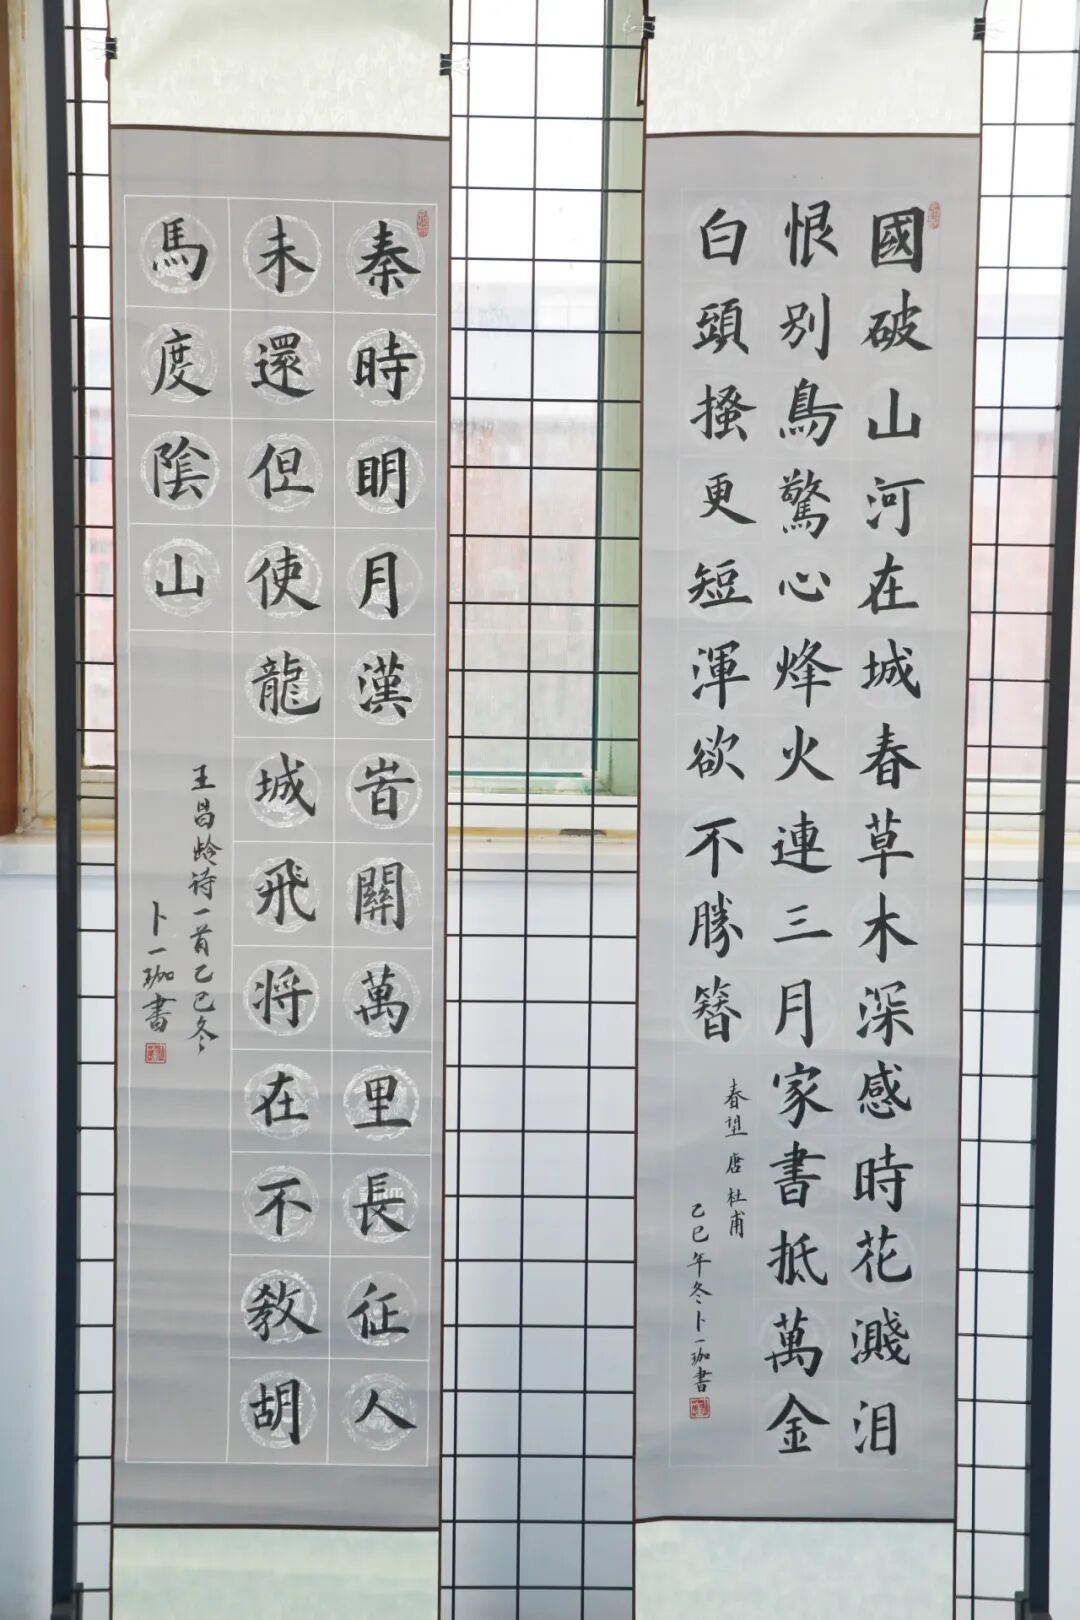 國破山河在城春草木深感時花濺泪
恨别鳥驚心烽火連三月家書抵萬金
白頭搔更短渾欲不勝簪
春望 唐 杜甫
乙巳年冬卜一珈書
秦時眀月漢旹關萬里長征人
未還但使龍城飛将在不教胡
馬度陰山
王昌龄诗一首乙巳冬
卜一珈書